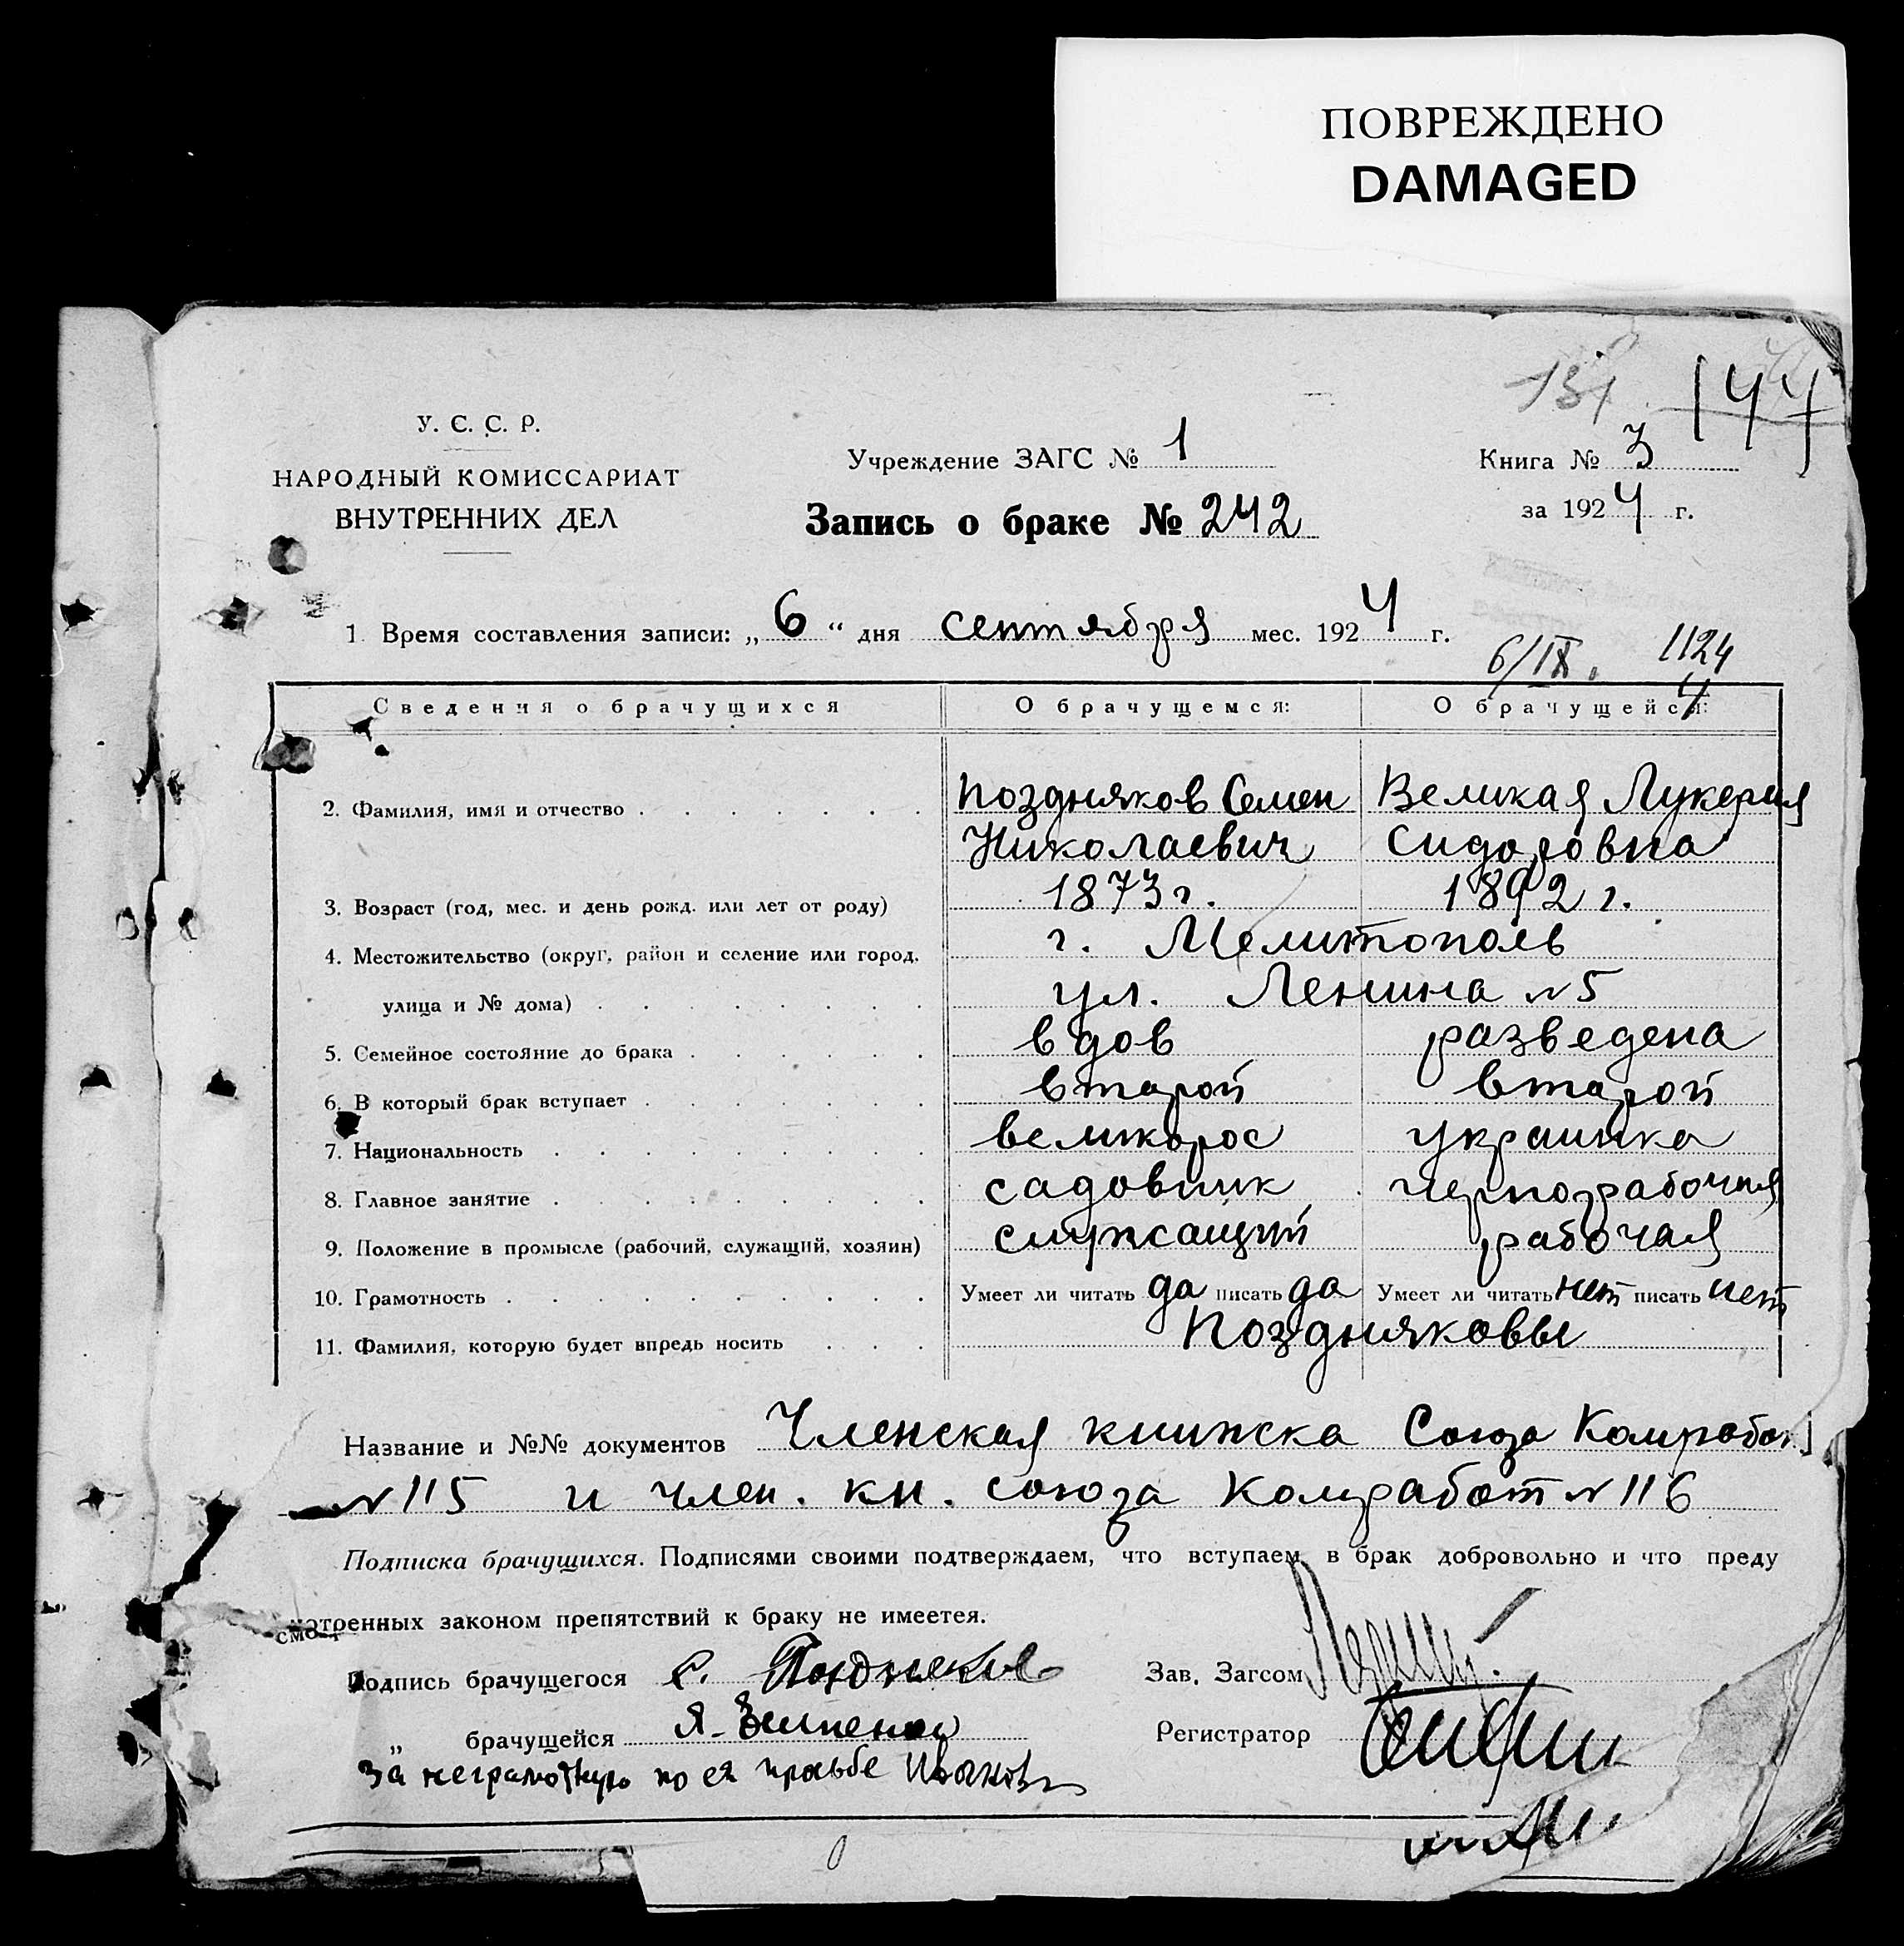 ПОВРЕЖДЕНО
DAMAGED
131
144
У. С. С. Р.
НАРОДНЫЙ КОМИССАРИАТ
ВНУТРЕННИХ ДЕЛ
Учреждение ЗАГС № 1
Запись о браке № 242
Книга № 3
за 1924 г.
1. Время составления записи: „6“ дня сентября мес. 1924 г.
6/IX. 1124
4
Сведения о брачущихся О брачущемся: О брачущейся:
2. Фамилия, имя и отчество Поздняков Семен Великая Лукерия
Николаевич Сидоровна
3. Возраст (год, мес. и день рожд. или лет от роду) 1873 г. 1892 г.
4. Местожительство (округ, район и селение или город, г. Мелитополь
улица и № дома) ул. Ленина № 5
5. Семейное состояние до брака вдов разведена
6. В который брак вступает второй второй
7. Национальность великорос украинка
8. Главное занятие садовник чернорабочая
9. Положение в промысле (рабочий, служащий, хозяин) служащий рабочая
10. Грамотность Умеет ли читать да писать да Умеет ли читать нет писать нет
11. Фамилия, которую будет впредь носить Поздняковы
Название и №№ документов Членская книжка Союза Комработ.
№ 115 и член. кн. союза Комработ № 116
Подписка брачущихся. Подписями своими подтверждаем, что вступаем в брак добровольно и что преду
смотренных законом препятствий к браку не имеетея.
Подпись брачущегося С. Поздняков Зав. Загсом
„ брачущейся Регистратор
за неграмотную по ея прозьбе